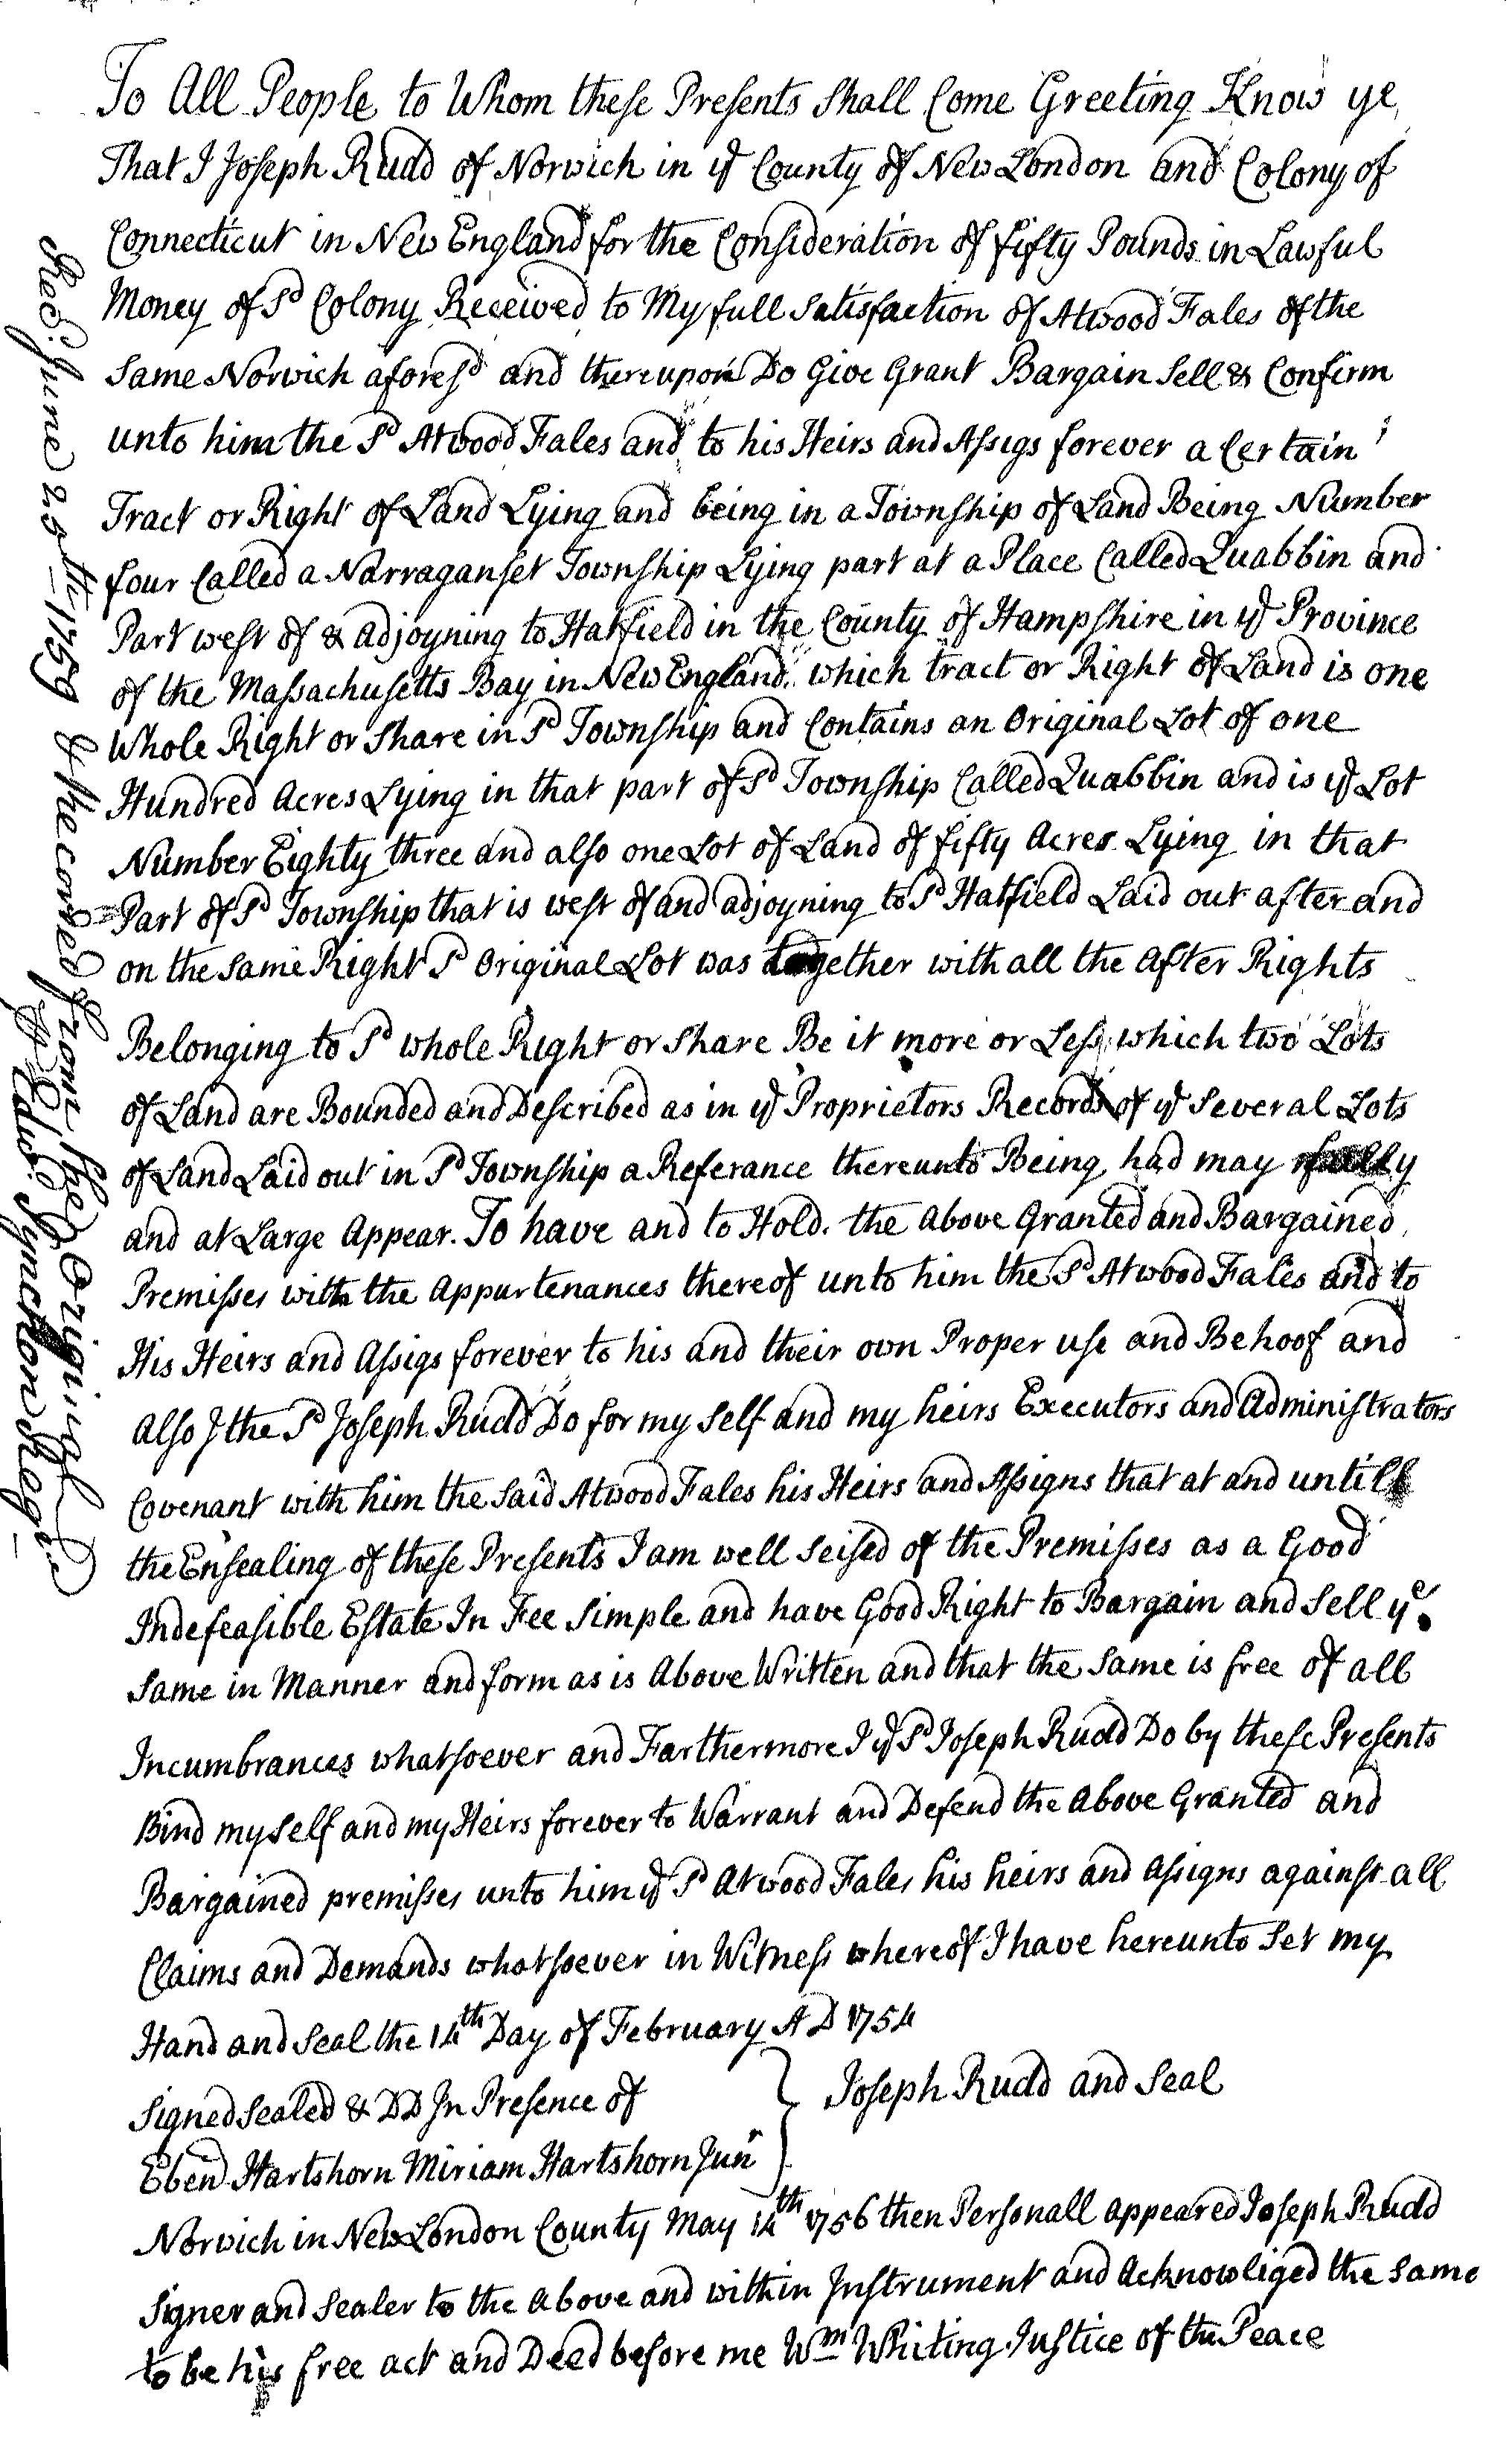 To All People to Whom these Presents Shall Come Greeting Know ye
That I Joseph Rudd of Norwich in ye County of New London and Colony of
Connecticut in New England for the Consideration of fifty Pounds in Lawful
Money of Sd Colony Received to My full Satisfaction of Atwood Fales of the
Same Norwich aforesd and thereupon Do Give Grant Bargain Sell & Confirm
unto him the Sd Atwood Fales and to his Heirs and Assigs forever a Certain
Tract or Right of Land Lying and being in a Township of Land Being Number
four Called a Narraganset Township Lying part at a Place Called Quabbin and
Part west of & adjoyning to Hatfield in the County of Hampshire in ye Province
of the Massachusetts Bay in New England which tract or Right of Land is one
Whole Right or Share in Sd Township and Contains an Original Lot of one
Hundred Acres Lying in that part of Sd Township Called Quabbin and is ye Lot
Number Eighty three and also one Lot of Land of fifty Acres Lying in that
Part of Sd Township that is west of and adjoyning to Sd Hatfield Laid out after and
on the Same Right Sd Original Lot was together with all the After Rights
Belonging to Sd whole Right or Share Be it more or Less which two Lots
of Land are Bounded and Described as in ye Proprietors Records of ye Several Lots
of Land Laid out in Sd Township a Referance thereunto Being had may fully
and at Large Appear. To have and to Hold. the Above Granted and Bargained
Premisses with the Appurtenances thereof unto him the Sd Atwood Fales and to
His Heirs and Assigs forever to his and their own Proper use and Behoof and
Also I the Sd Joseph Rudd Do for my Self and my heirs Executors and Administrators
Covenant with him the Said Atwood Fales his Heirs and Assigns that at and untill
the Ensealing of these Presents I am well Seised of the Premisses as a Good
Indefeasible Estate In Fee Simple and have Good Right to Bargain and Sell ye
Same in Manner and form as is Above Written and that the Same is free of all
Incumbrances whatsoever and Farthermore I ye Sd Joseph Rudd Do by these Presents
Bind my Self and my Heirs forever to Warrant and Defend the Above Granted and
Bargained premisses unto him ye Sd Atwood Fales his heirs and Assigns against all
Claims and Demands whatsoever in Witness whereof I have hereunto Set my
Hand and Seal the 14th Day of February A D 1754
Signed Sealed & DD In Presence of
Joseph Rudd and Seal
Eben Hartshorn Miriam Hartshorn Junr
Norwich in New London County May 14th 1756 then Personall appeared Joseph Rudd
Signer and Sealer to the Above and within Instrument and Acknowliged the Same
to be his free act and Deed before me Wm Whiting Justice of the Peace
Recd. June 25th 1759 & Recorded from the Original
P Edwd. Pynchon Regr.